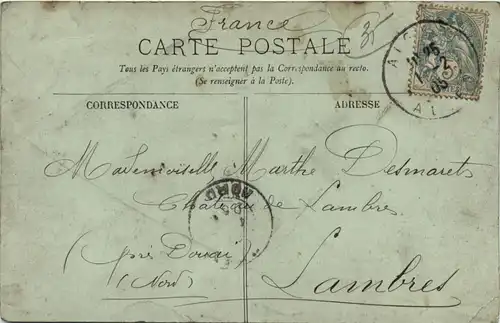 France
CARTE POSTALE
Tous les Pays étrangers n'acceptent pas la Correspondance au recto.
(Se renseigner à la Poste).
CORRESPONDANCE
ADRESSE
Mademoiselle Marthe Desmarets
Château de Lambres
(près Douai)
(Nord)
Lambres
NORD